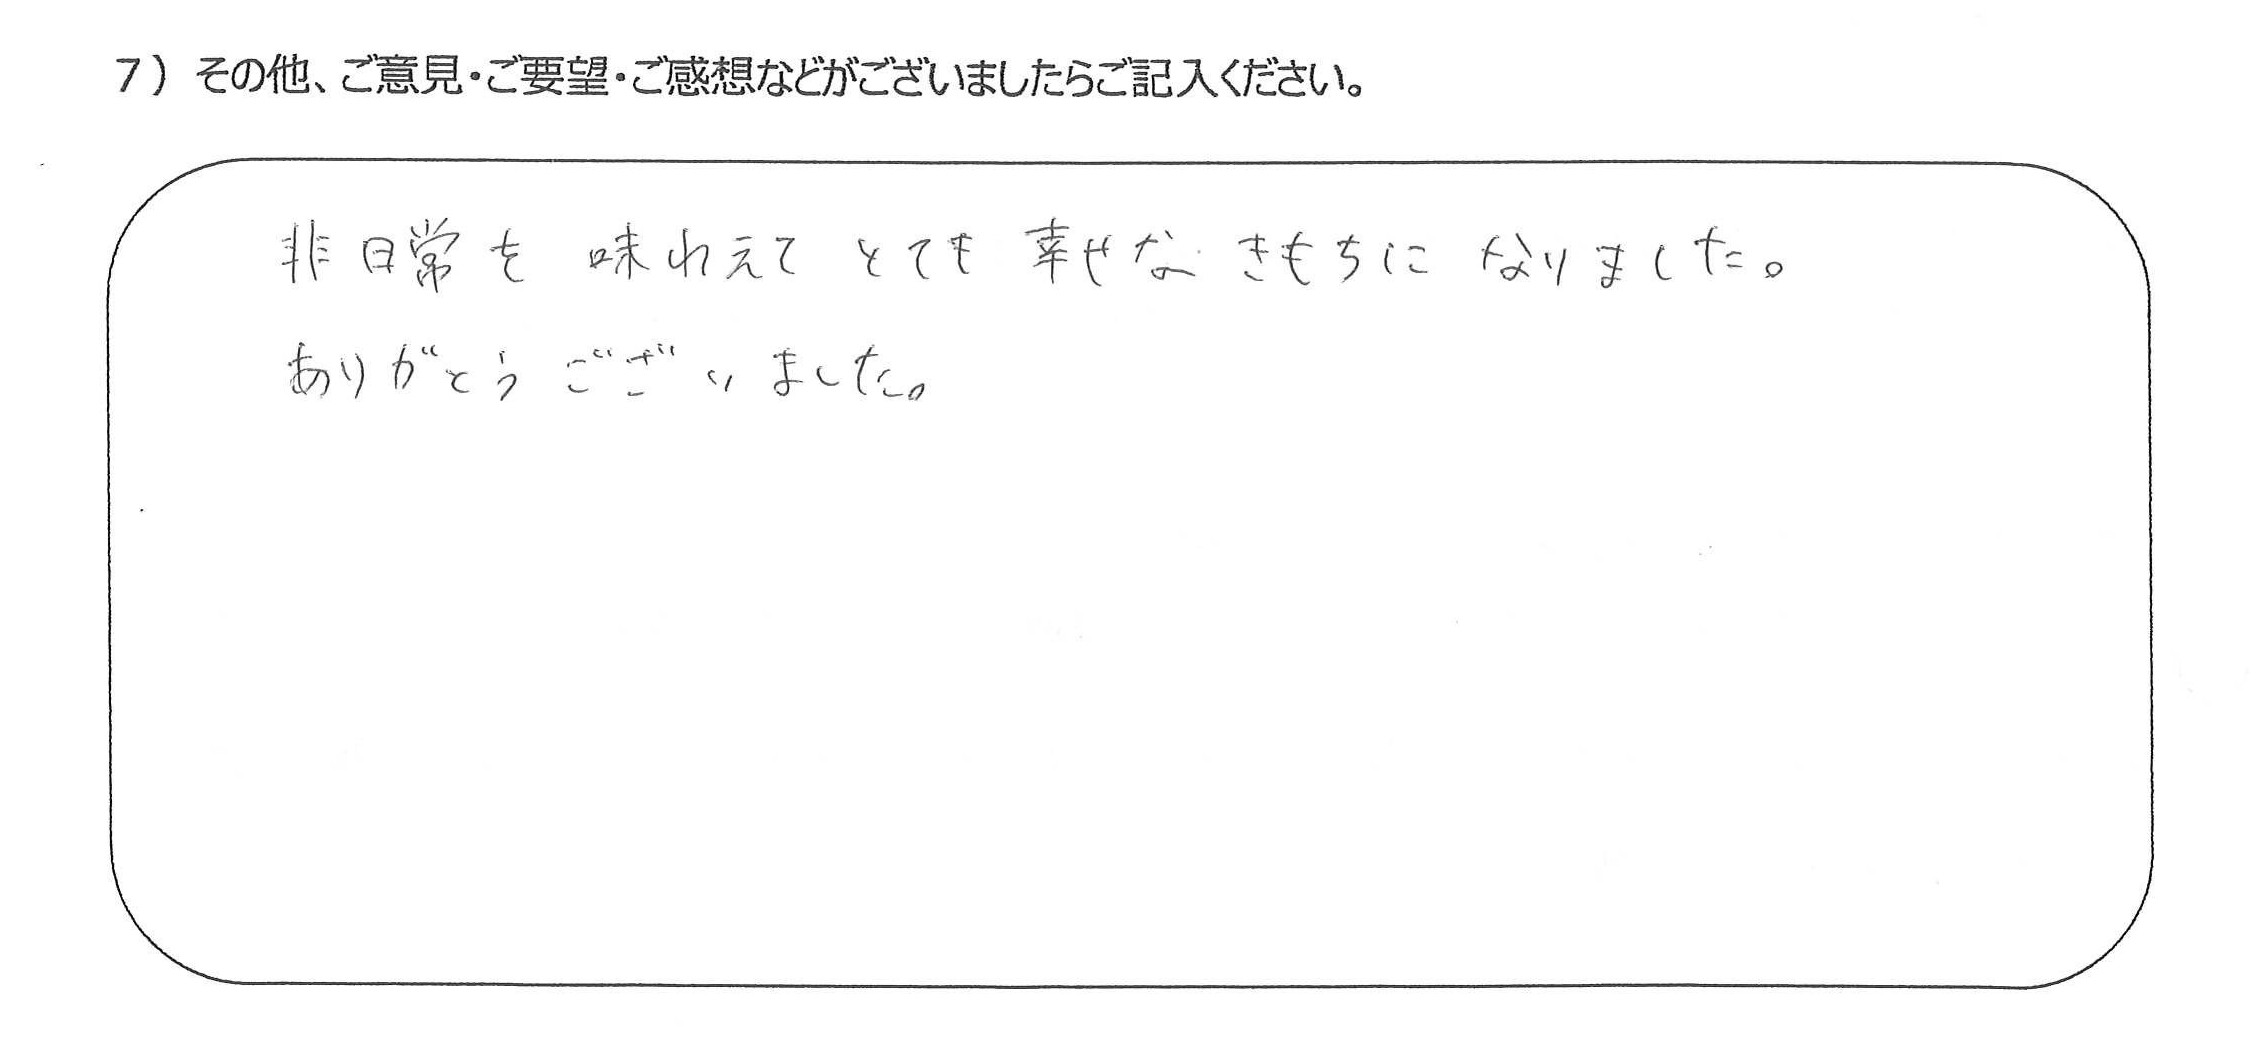 7）その他、ご意見・ご要望・ご感想などがございましたらご記入ください。
非日常を 味われえて とても 幸せな きもちに なりました。
ありがとうございました。